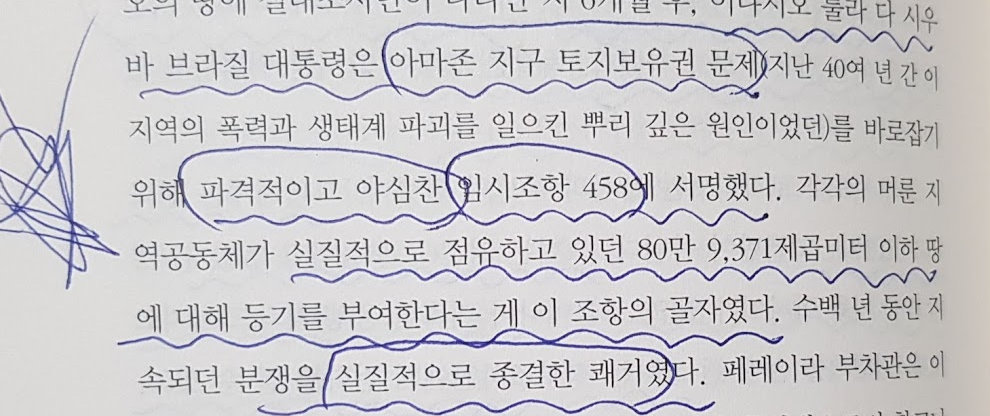 후, 이나시오 룰라 다 시우
바 브라질 대통령은 아마존 지구 토지보유권 문제(지난 40여 년 간 이
지역의 폭력과 생태계 파괴를 일으킨 뿌리 깊은 원인이었던)를 바로잡기
위해 파격적이고 야심찬 임시조항 458에 서명했다. 각각의 머룬 지
역공동체가 실질적으로 점유하고 있던 80만 9,371제곱미터 이하 땅
에 대해 등기를 부여한다는 게 이 조항의 골자였다. 수백 년 동안 지
속되던 분쟁을 실질적으로 종결한 쾌거였다. 페레이라 부차관은 이